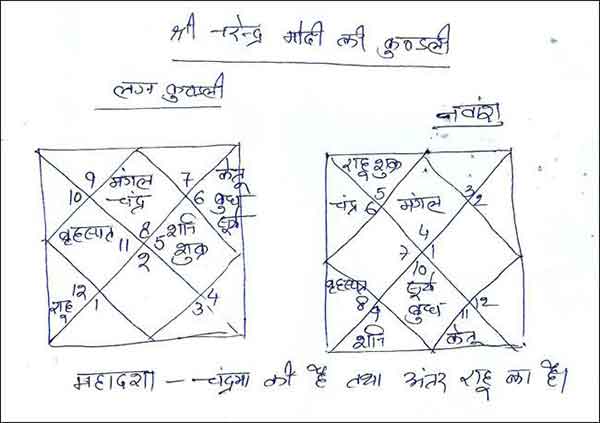 श्री नरेन्द्र मोदी की कुण्डली
लग्न कुण्डली
नवांश
9 मंगल 7 केतू
10 चंद्र 6 बुध
सूर्य
8
बृहस्पत 11 5 शनि
2 शुक्र
12 4
राहू 1 3
राहू शुक्र
चंद्र 5 मंगल 3 2
6
4
7 1
10
बृहस्पत सूर्य 12
8 9 बुध 11
शनि केतू
महादशा -- चंद्रमा की है तथा अंतर राहू का है।